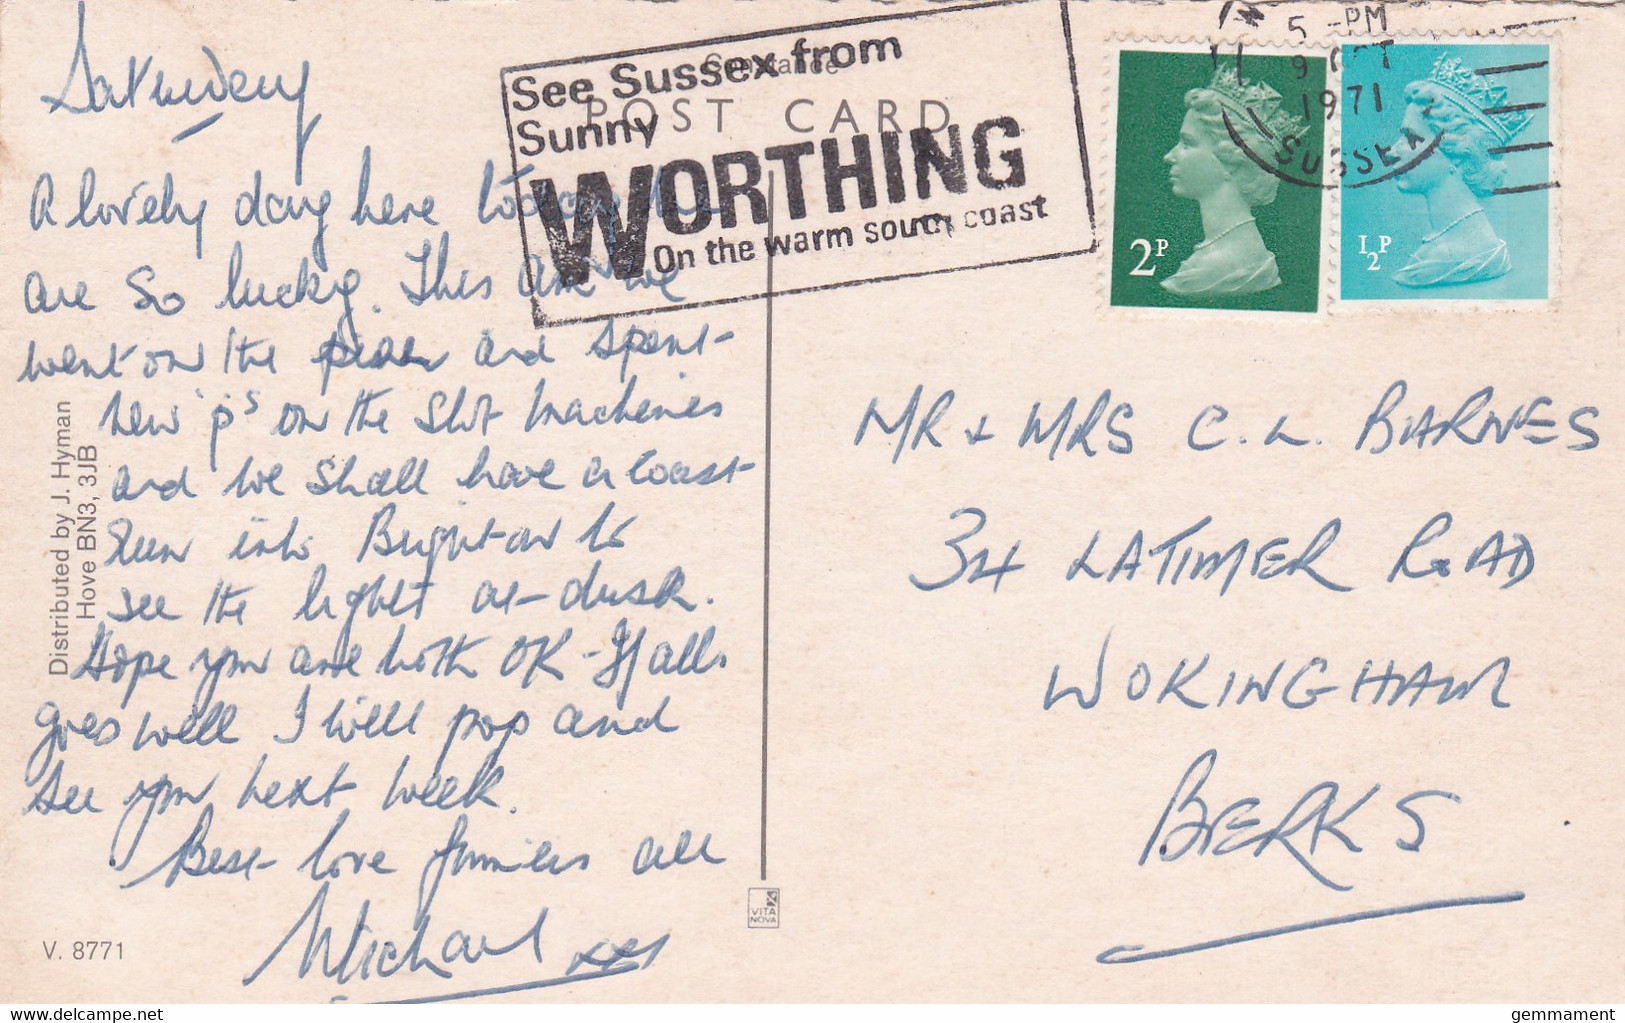 Saturday
A lovely day here today we
are so lucky. This am we
went on the pier and spent
new 'p's on the slot machines
and we shall have a coast
run into Brighton to
see the lights at dusk.
Hope you are both OK - If all
goes well I will pop and
see you next week.
Best love from us all
Michael xxx
Distributed by J. Hyman
Hove BN3, 3JB
V. 8771
VITA
NOVA
POST CARD
See Sussex from
Sunny
WORTHING
On the warm south coast
5 - PM
9 OCT
1971
SUSSEX
2P
½P
MR & MRS C. L. BARNES
34 LATIMER ROAD
WOKINGHAM
BERKS
delcampe.net
gemmament